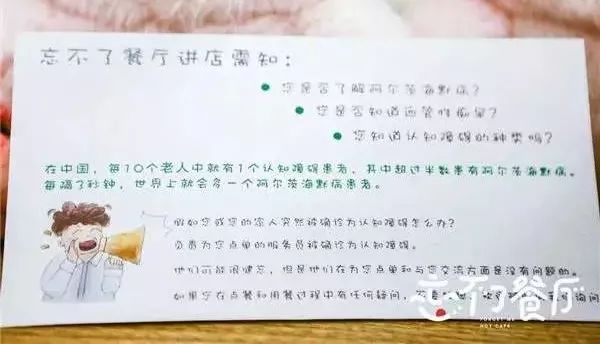 忘不了餐厅进店需知：
您是否了解阿尔茨海默病？
您是否知道血管性痴呆？
您知道认知障碍的种类吗？
在中国，每10个老人中就有1个认知障碍患者，其中超过半数患有阿尔茨海默病。
每隔3秒钟，世界上就会多一个阿尔茨海默病患者。
假如您或您的家人突然被确诊为认知障碍怎么办？
负责为您点单的服务员被确诊为认知障碍。
他们可能很健忘，但是他们在为您点单和与您交流方面是没有问题的。
如果您在点餐和用餐过程中有任何疑问，
询问
忘不了餐厅
FORGET ME
NOT CAFE